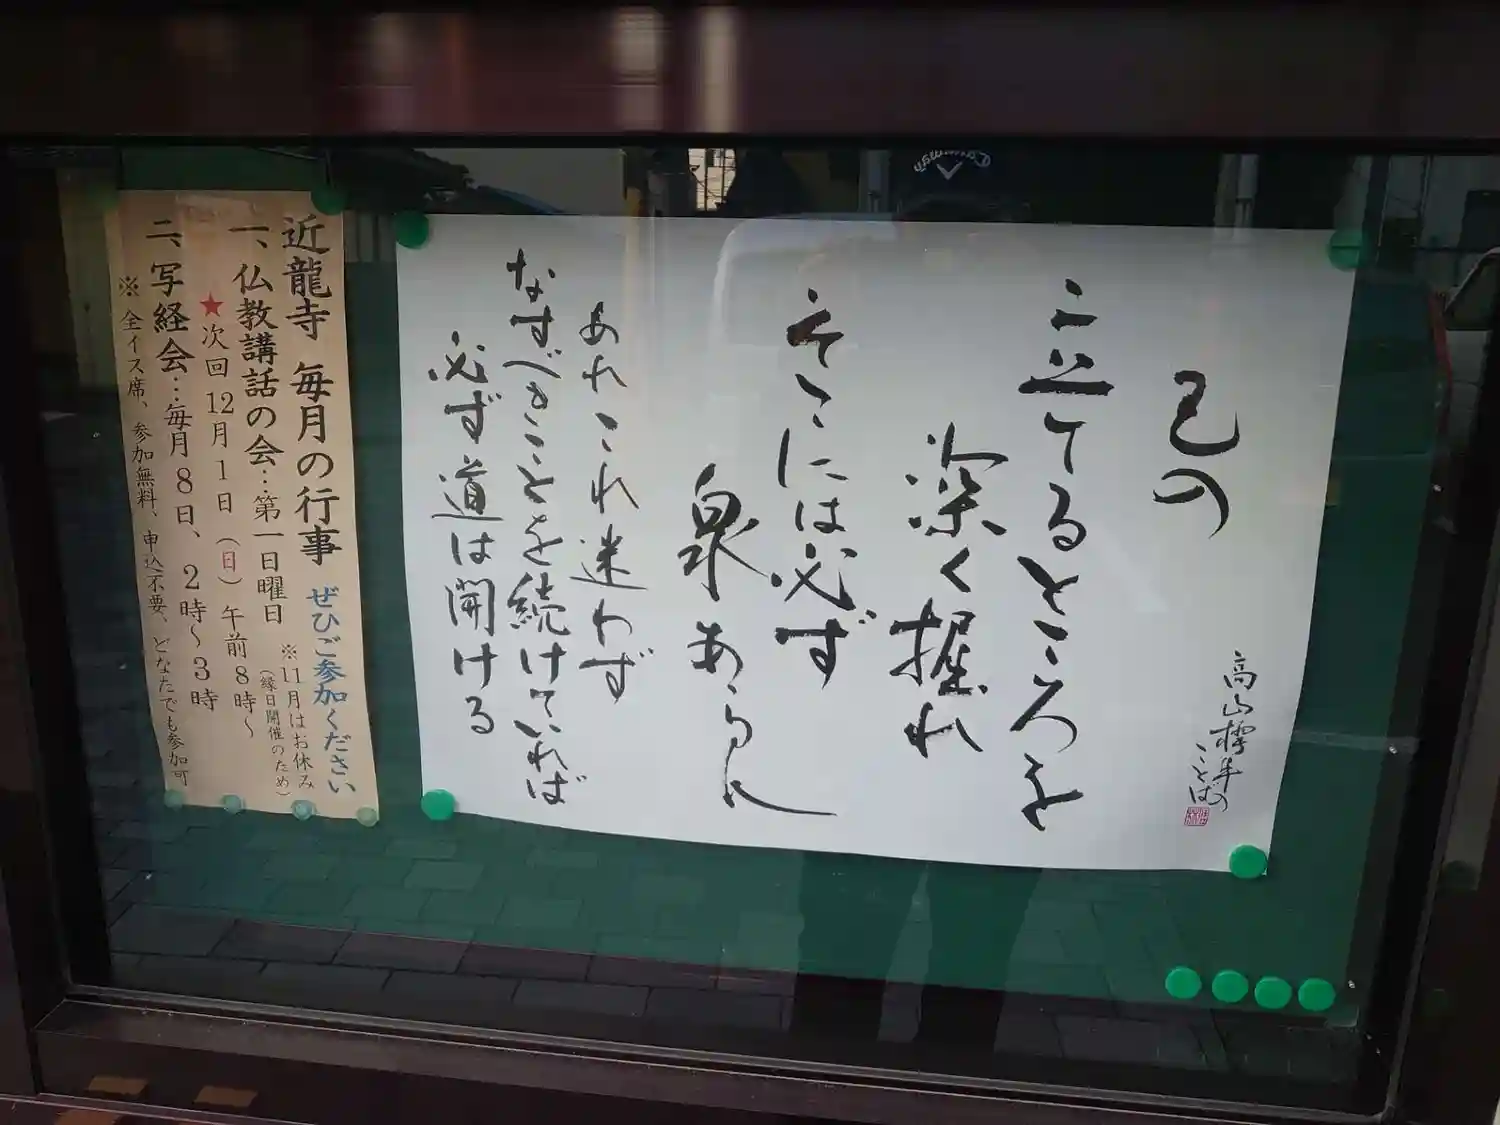 己の
立てるところを
深く掘れ
そこには必ず
泉あらん
あれこれ迷わず
なすべきことを続けていれば
必ず道は開ける
高山樗牛の
ことば
近龍寺 毎月の行事 ぜひご参加ください
一、仏教講話の会…第一日曜日 ※11月はお休み
(縁日開催のため)
★次回12月1日(日)午前8時〜
二、写経会…毎月8日、2時〜3時
※全イス席、参加無料、申込不要、どなたでも参加可